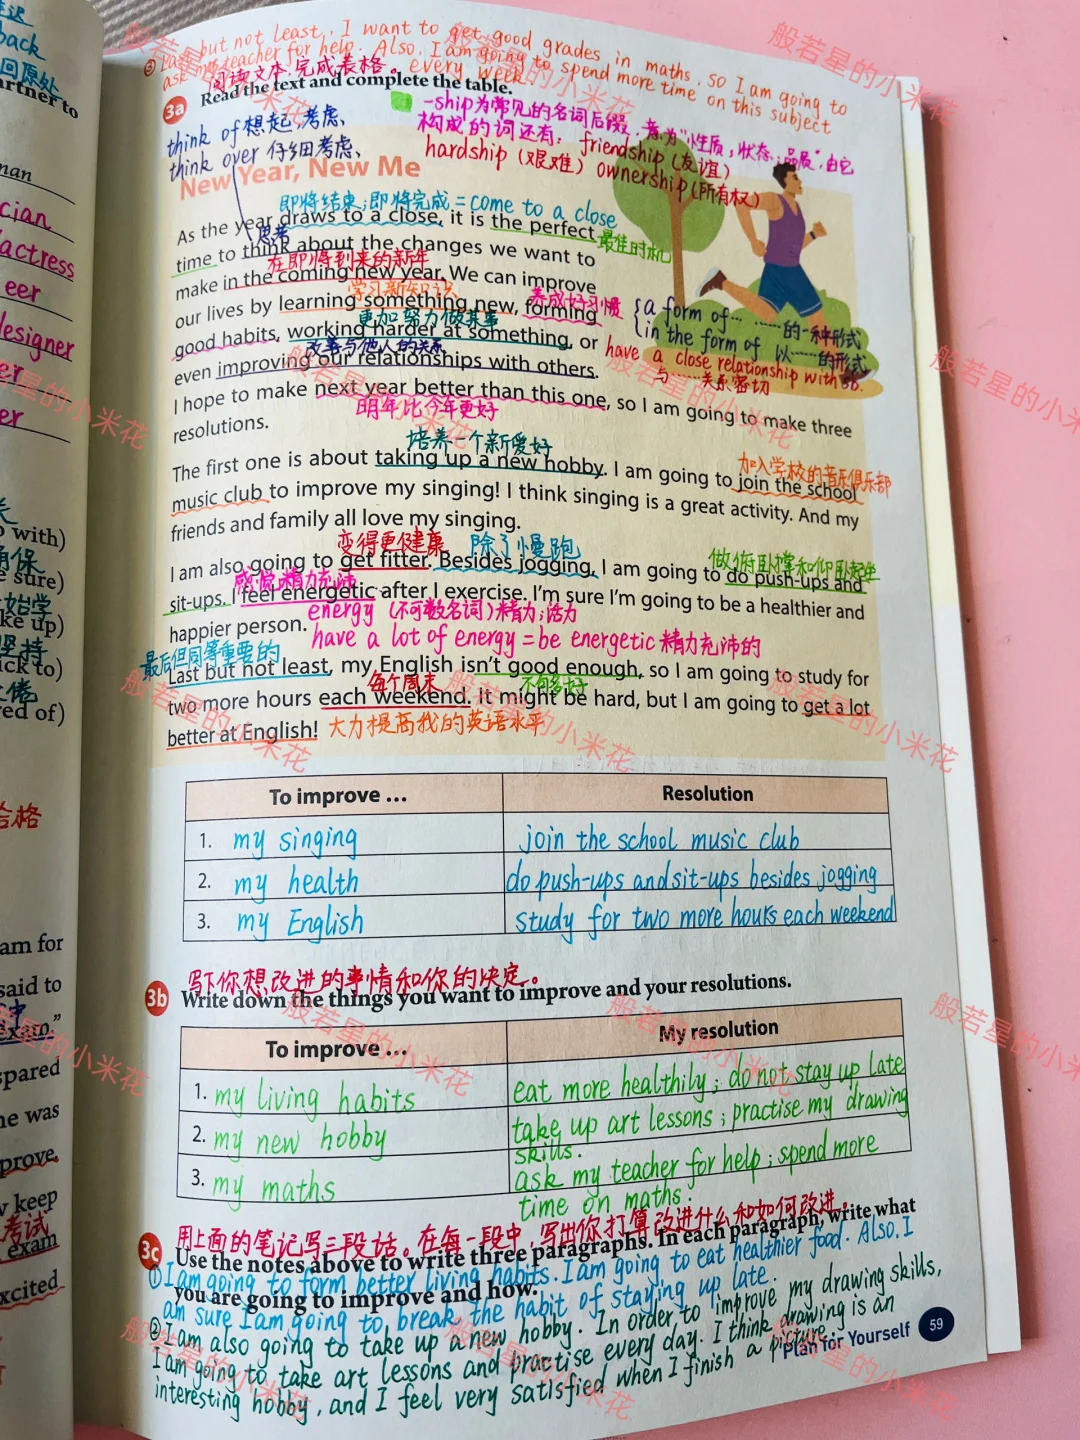 ③ Last but not least, I want to get good grades in maths, so I am going to
ask my teacher for help. Also, I am going to spend more time on this subject
every week.
阅读文本,完成表格。
3a Read the text and complete the table.
-ship为常见的名词后缀,意为"性质;状态;品质",由它
构成的词还有: friendship (友谊)
hardship (艰难) ownership (所有权)
think of 想起,考虑、
think over 仔细考虑、
New Year, New Me
即将结束;即将完成 = come to a close
As the year draws to a close, it is the perfect
最佳时机
思考
time to think about the changes we want to
在即将到来的新年
make in the coming new year. We can improve
学习新知识
养成好习惯
our lives by learning something new, forming
{a form of… ……的一种形式
in the form of 以……的形式
更加努力做某事
good habits, working harder at something, or
have a close relationship with sb.
与……关系密切
改善与他人的关系
even improving our relationships with others.
I hope to make next year better than this one, so I am going to make three
明年比今年更好
resolutions.
培养一个新爱好
The first one is about taking up a new hobby. I am going to join the school
加入学校的音乐俱乐部
music club to improve my singing! I think singing is a great activity. And my
friends and family all love my singing.
变得更健康
除了慢跑
做俯卧撑和仰卧起坐
I am also going to get fitter. Besides jogging, I am going to do push-ups and
感觉精力充沛
sit-ups. I feel energetic after I exercise. I'm sure I'm going to be a healthier and
energy (不可数名词) 精力;活力
happier person.
have a lot of energy = be energetic 精力充沛的
最后但同等重要的
Last but not least, my English isn't good enough, so I am going to study for
每个周末
不够好
two more hours each weekend. It might be hard, but I am going to get a lot
better at English! 大力提高我的英语水平
To improve … Resolution
1. my singing join the school music club
2. my health do push-ups and sit-ups besides jogging
3. my English study for two more hours each weekend
写下你想改进的事情和你的决定。
3b Write down the things you want to improve and your resolutions.
To improve … My resolution
1. my living habits eat more healthily; do not stay up late
2. my new hobby take up art lessons; practise my drawing
skills.
3. my maths ask my teacher for help; spend more
time on maths.
用上面的笔记写三段话。在每一段中,写出你打算改进什么和如何改进。
3c Use the notes above to write three paragraphs. In each paragraph, write what
you are going to improve and how.
① I am going to form better living habits. I am going to eat healthier food. Also, I
am sure I am going to break the habit of staying up late.
② I am also going to take up a new hobby. In order to improve my drawing skills,
I am going to take art lessons and practise every day. I think drawing is an
interesting hobby, and I feel very satisfied when I finish a picture.
Plan for Yourself 59
般若星的小米花